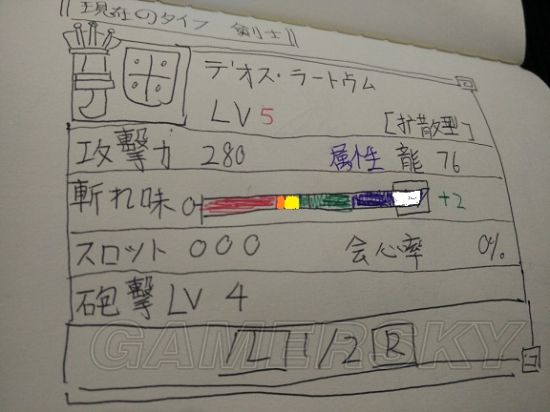 現在のタイプ 剣士
デオス・ラートゥム
LV5
[扩散型]
攻撃力 280 属性 龍 76
斬れ味 0 +2
スロット 〇〇〇 会心率 0%
砲撃LV 4
L 1/2 R
GAMERSKY